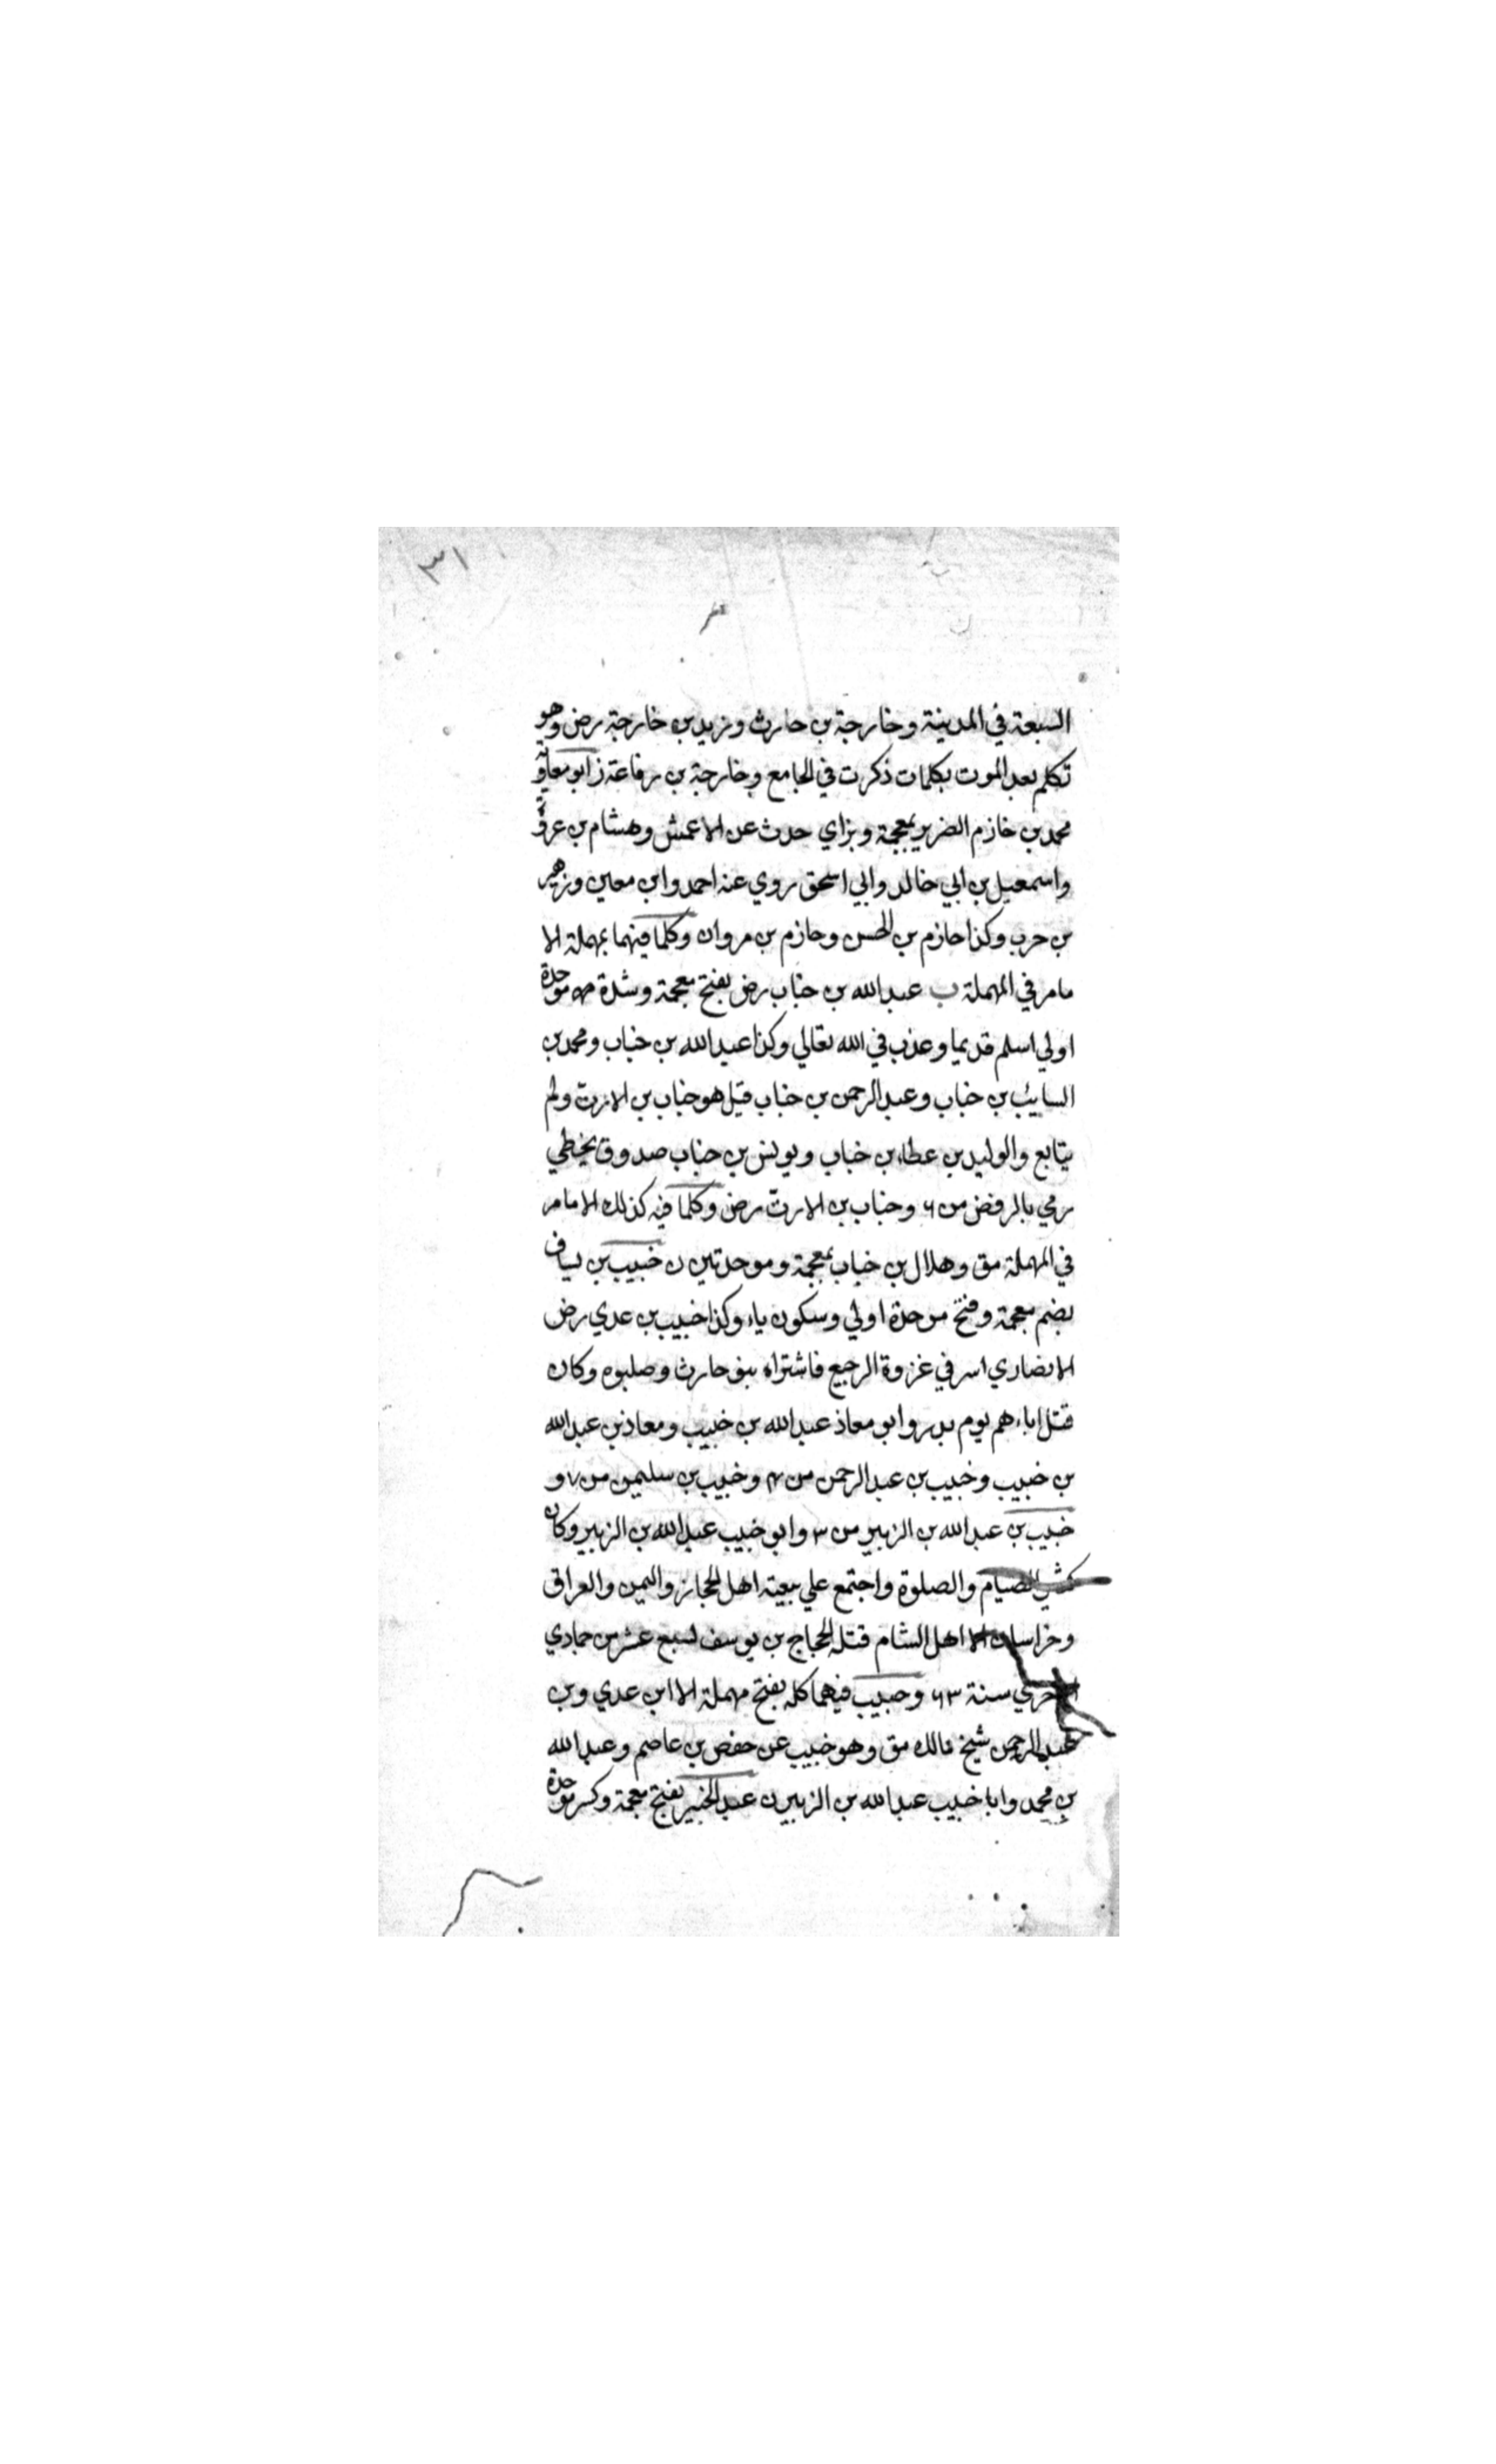 ٣١
السبعة في المدينة وخارجة بن حارث وزيد بن خارجة رض وهو
تكلم بعد الموت بكلمات ذكرت في الجامع وخارجة بن رفاعة ز ابو معاوية
محمد بن خازم الضرير بمعجمة وبزاي حدث عن الاعمش وهشام بن عروة
واسمعيل بن ابي خالد وابي اسحق روي عنه احمد وابن معين وزهير
بن حرب وكذا حازم بن الحسن وحازم بن مروان وكلما فيهما بمهملة الا
مامر في المهملة ب عبد الله بن خباب رض بفتح معجمة وشدة موحدة
اولي اسلم قديما وعذب في الله تعالي وكذا عبد الله بن خباب ومحمد بن
السايب بن خباب وعبد الرحمن بن خباب قيل هو خباب بن الارت ولم
يتابع والوليد بن عطاء بن خباب ويونس بن خباب صدوق يخطي
رمي بالرفض من ٦ وخباب بن الارتّ رض وكلما فيه كذلك الا مامر
في المهملة مق وهلال بن خباب بمعجمة وموحدتين ن خبيب بن يساف
بضم معجمة وفتح موحدة اولي وسكون ياء وكذا خبيب بن عدي رض
الانصاري اسر في غزوة الرجيع فاشتراه بنو حارث وصلبوه وكان
قتل اباءهم يوم بدر وابو معاذ عبد الله بن خبيب ومعاذ بن عبد الله
بن خبيب وخبيب بن عبد الرحمن من ٤ وخبيب بن سليمن من ٧ و
خبيب بن عبد الله بن الزبير من ٣ وابو خبيب عبد الله بن الزبير وكان
كثير الصيام والصلوة واجتمع علي بيعته اهل الحجاز واليمن والعراق
وخراسان الا اهل الشام قتله الحجاج بن يوسف لسبع عشر من جمادي
الاخري سنة ٦٣ وحبيب فيهما كله بفتح مهملة الا ابن عدي وبن
عبد الرحمن شيخ مالك مق وهو خبيب عن حفص بن عاصم وعبد الله
بن محمد وابا خبيب عبد الله بن الزبير ن عبد الخبير بفتح معجمة وكسر موحدة